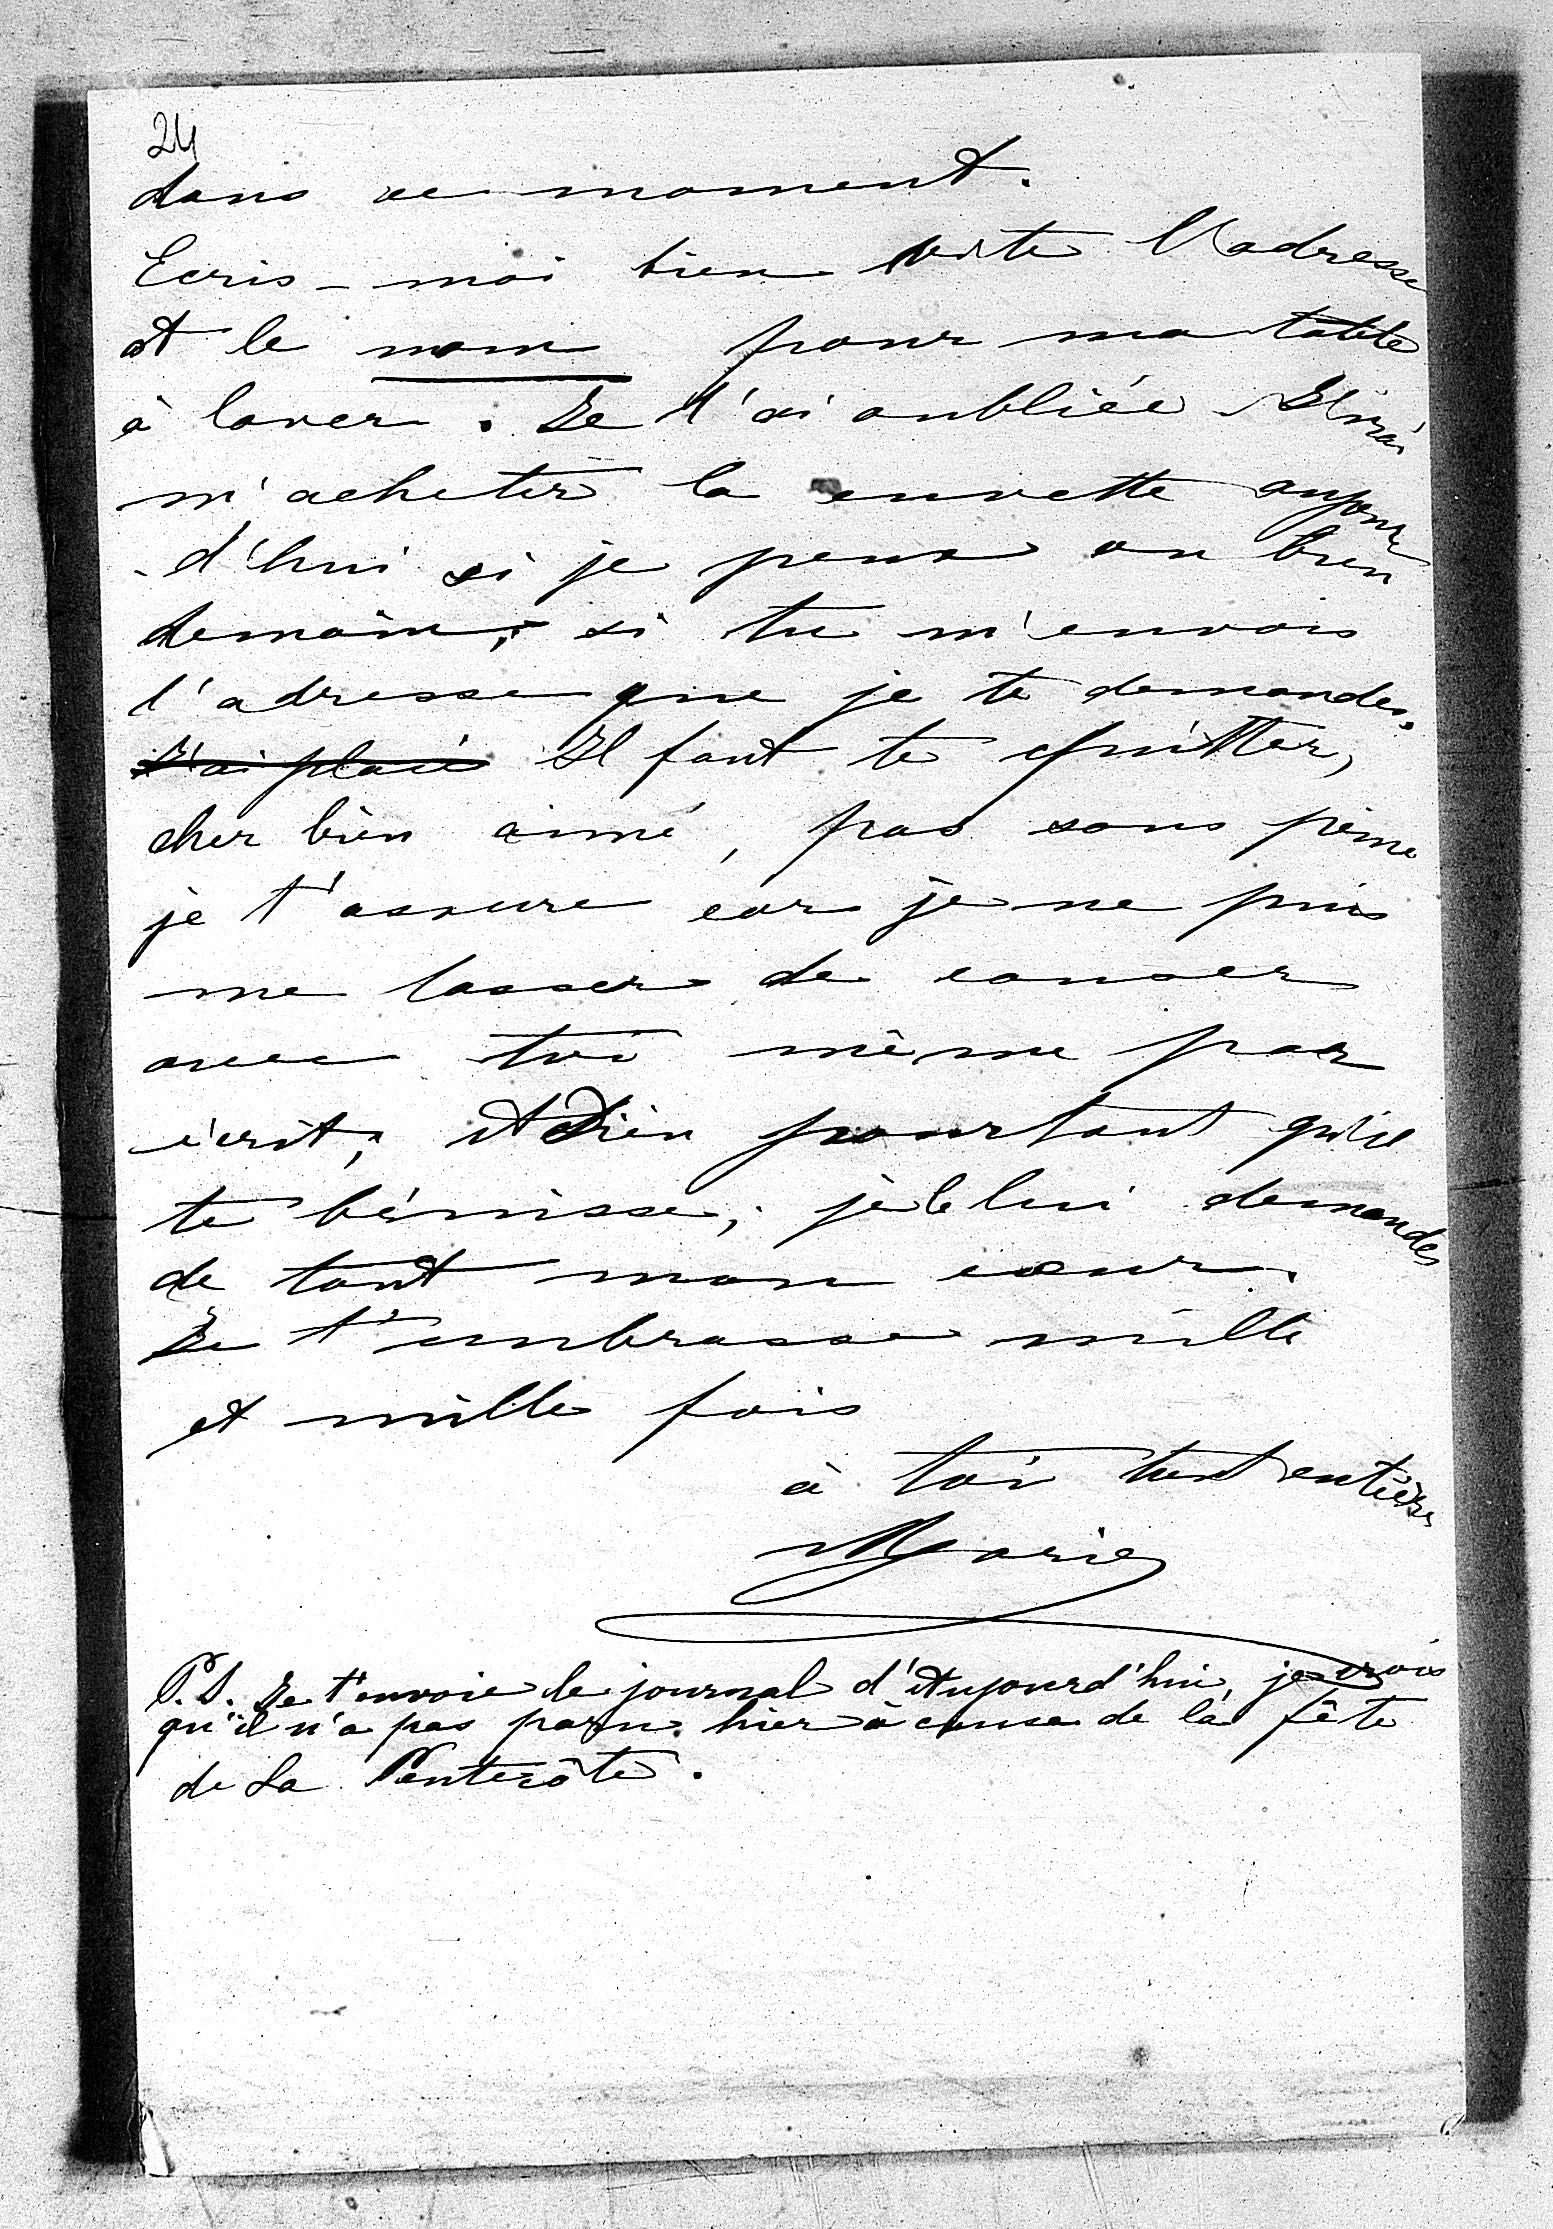 24
dans ce moment.
Ecris-moi bien vite l'adresse
et le nom pour ma table
à laver. Je l'ai oubliée. J'irai
m'acheter la cuvette aujour
-d'hui si je peux ou bien
demain, si tu m'envois
l'adresse que je te demandes.
J'ai placé Il faut te quitter,
cher bien aimé, pas sans peine
je t'assure car je ne puis
me lasser de causer
avec toi même par
écrit, A Dieu pourtant qu'il
te bénisse, je le lui demandes
de tout mon cœur.
Je t'embrasse mille
et mille fois
à toi tout entière
Marie
P.S. Je t'envoie le journal d'Aujourd'hui, je crois
qu'il n'a pas paru hier à cause de la fête
de La Pentecôte.